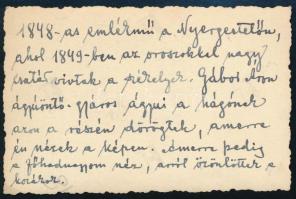 1848-as emlékmű a Nyergestetőn,
ahol 1849-ben az oroszokkal nagy
csatát vívtak a székelyek. Gábor Áron
ágyúöntő-gyáros ágyúi a hágónak
azon a részén dörögtek, amerre
én nézek a képen. Amerre pedig
a főhadnagyom néz, arról özönlöttek a
kozákok.